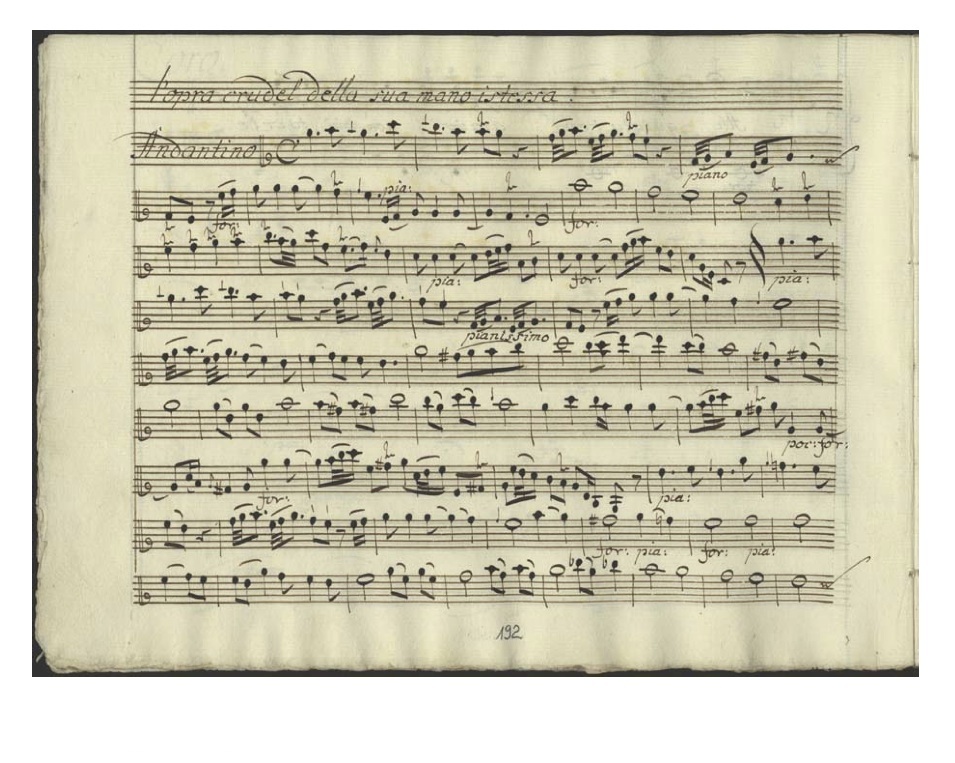 l'opra crudel della sua mano istessa.
Andantino
piano
for: pia: for:
pia: for: pia:
pianissimo
poc: for:
for: pia:
for: pia: for: pia:
192